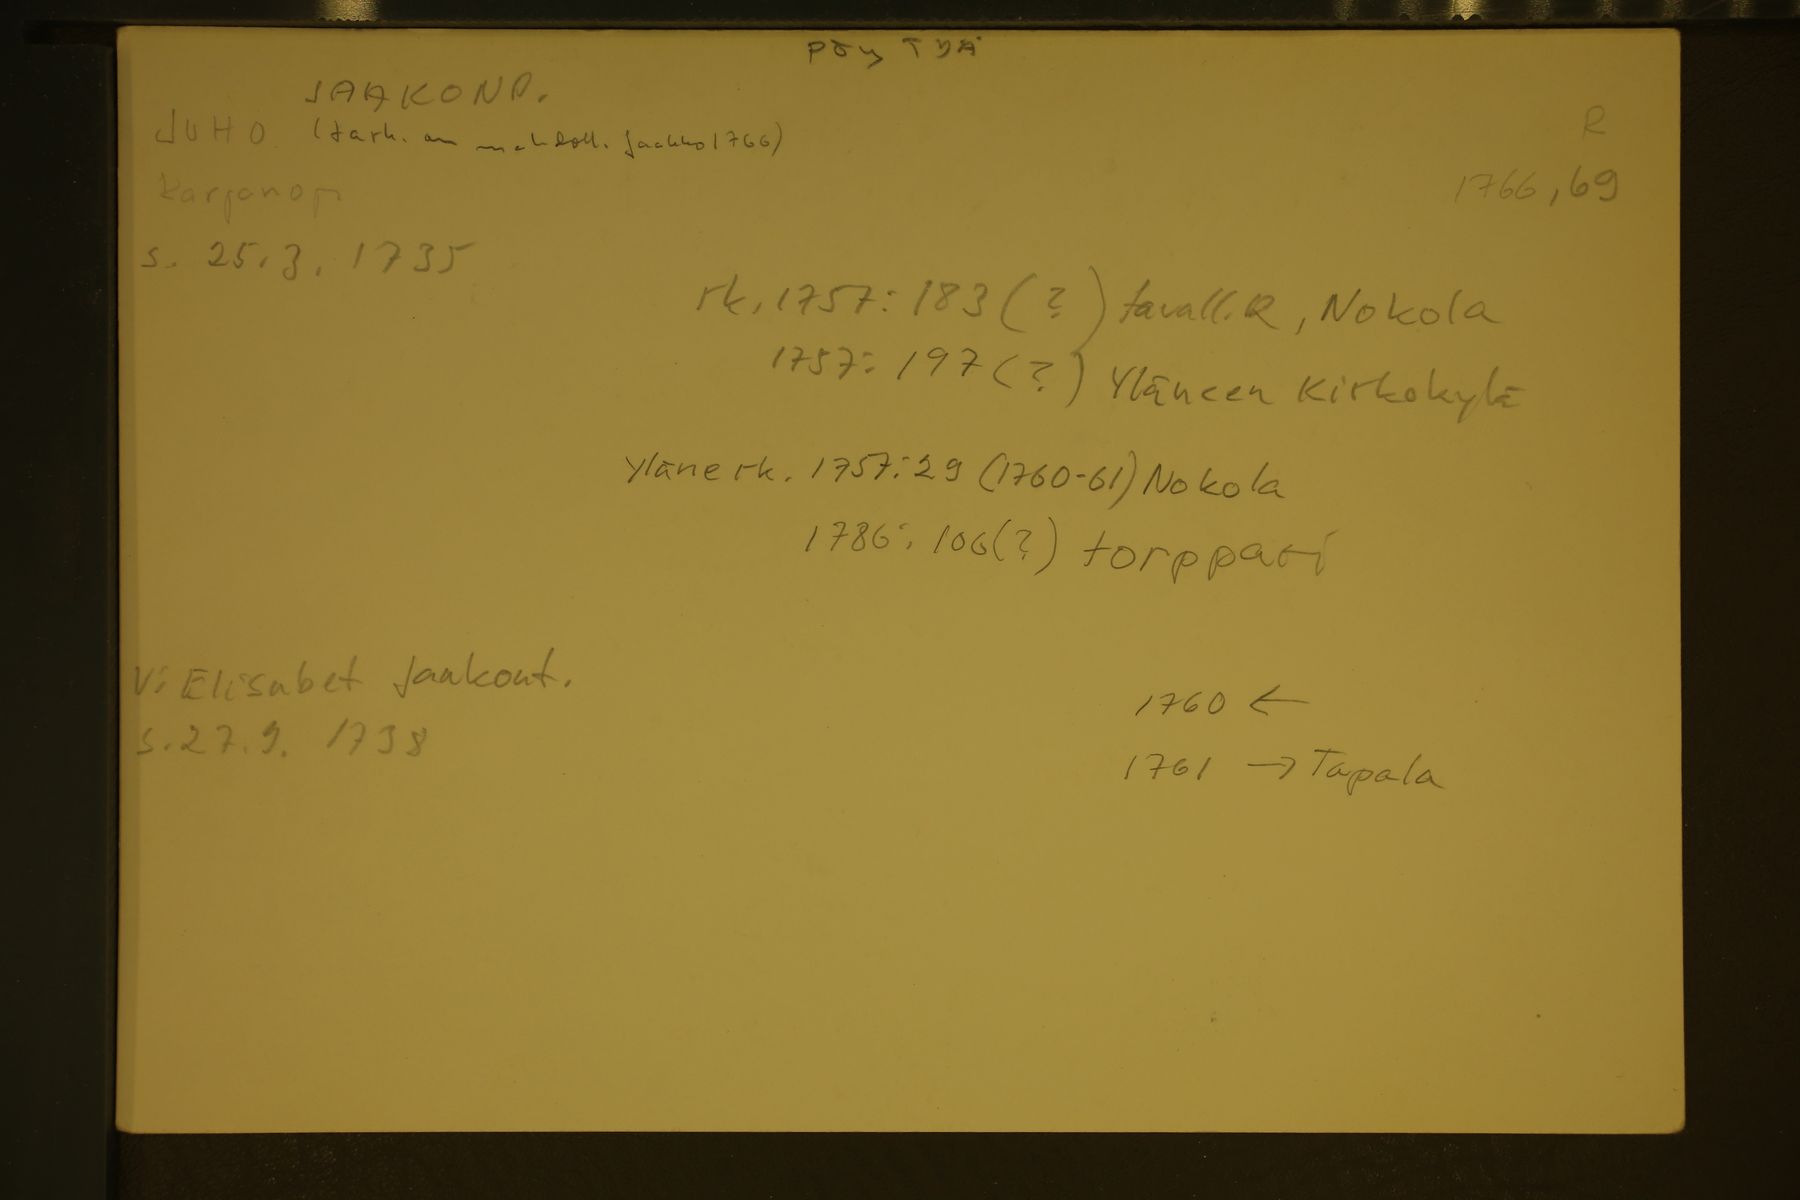 PÖYTYÄ
JAAKONP.
JUHO (tark. on mahdoll. Jaakko 1766)
R
Karjanop
1766, 69
s. 25.3. 1735
rk. 1757: 183 (?) tavall. R, Nokola
1757: 197 (?) Yläneen Kirkokylä
Yläne rk. 1757: 29 (1760-61) Nokola
1786: 106 (?) torppari
V: Elisabet Jaakont.
s. 27.9. 1738
1760 ←
1761 → Tapala